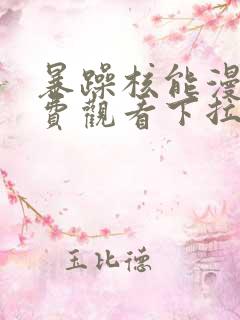 暴躁核能漫
費觀看下拉
玉比德